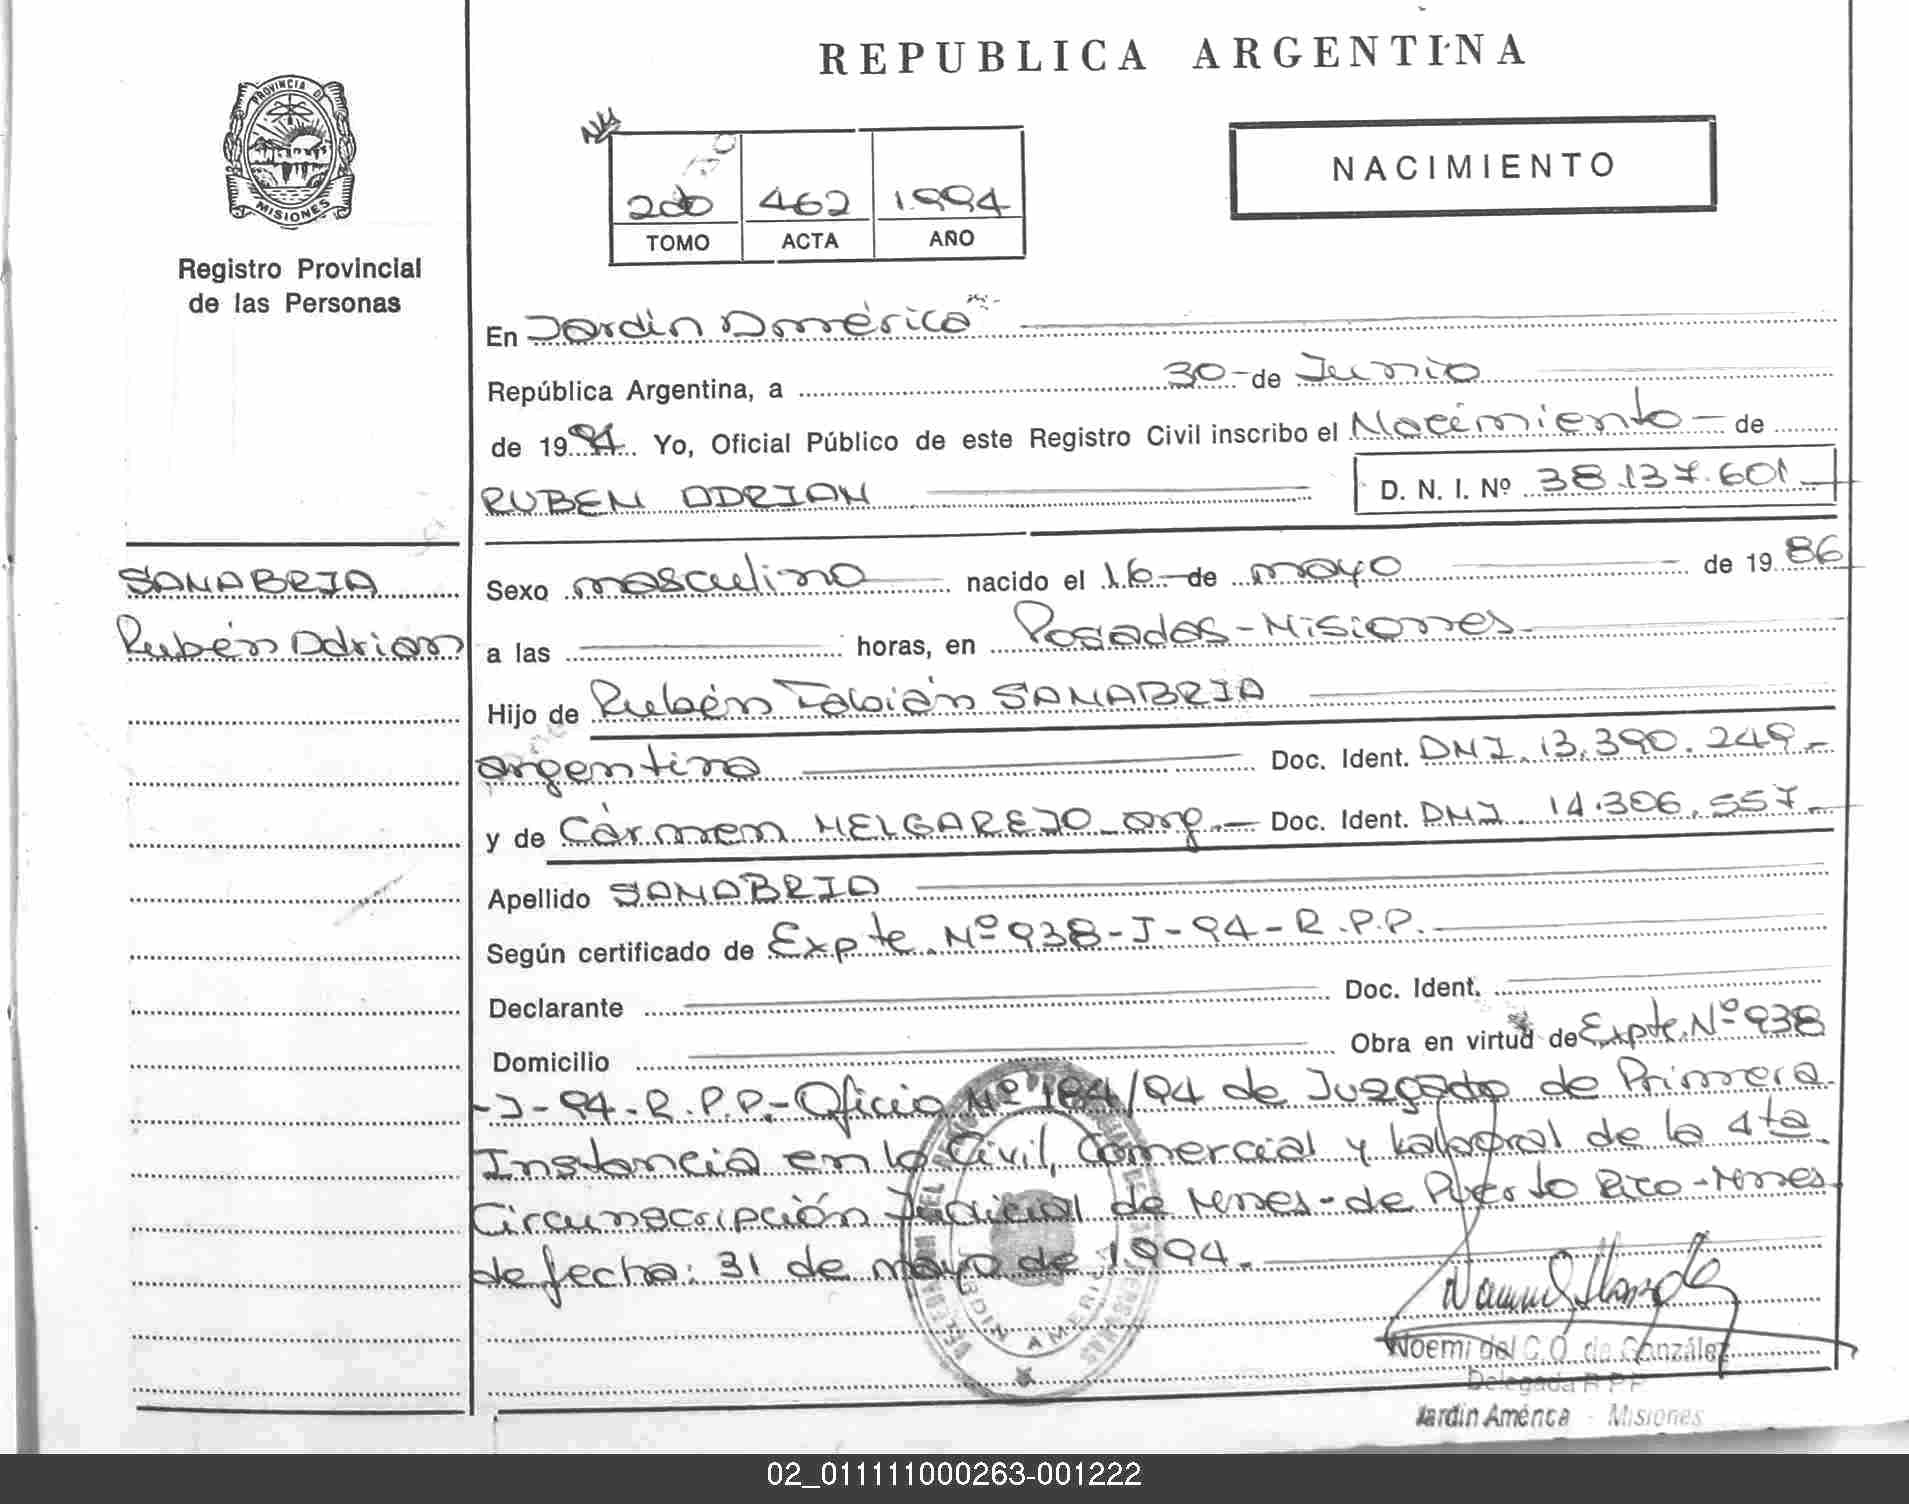 REPUBLICA ARGENTINA
PROVINCIA DE
MISIONES
Registro Provincial
de las Personas
NACIMIENTO
200 462 1994
TOMO ACTA AÑO
En Jardin América
República Argentina, a 30 - de Junio
de 1994 Yo, Oficial Público de este Registro Civil inscribo el Nacimiento - de
RUBEN ADRIAN D. N. I. Nº 38.137.601
SANABRIA
Rubén Adrian
Sexo masculino nacido el 16 - de mayo de 1986
a las horas, en Posadas - Misiones
Hijo de Rubén Fabián SANABRIA
argentino Doc. Ident. DNI. 13.390.249 -
y de Cármen MELGAREJO - arg. - Doc. Ident. DNI. 14.306.557 -
Apellido SANABRIA
Según certificado de Expte. Nº 938-J-94-R.P.P.
Declarante Doc. Ident.
Domicilio Obra en virtud de Expte. Nº 938
-J-94-R.P.P.- Oficio Nº 184/94 de Juzgado de Primera
Instancia en lo Civil, Comercial y Laboral de la 4ta
Circunscripción Judicial de Mnes - de Puerto Rico - Mnes
de fecha: 31 de mayo de 1994.
JARDIN AMERICA
Noemi del C.O. de González
Delegada R.P.P.
Jardín América - Misiones
02_011111000263-001222